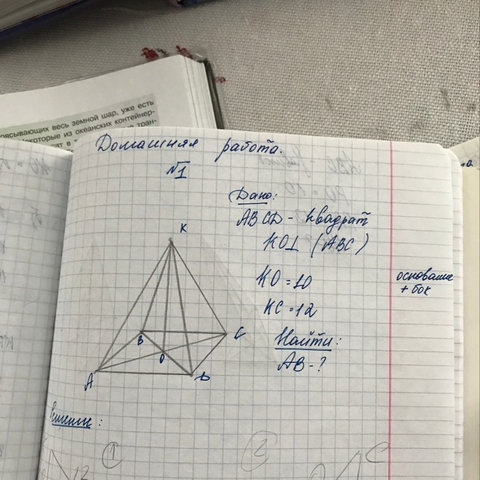 овсывающих весь земной шар, уже есть
некоторые из океанских контейнер-
Домашняя работа.
№1
Дано:
ABCD - квадрат
KO⊥ (ABC)
KO = 10
KC = 12
Найти:
AB - ?
основание
+ бок
K
B
C
O
A
D
Решение:
1
2
12
C